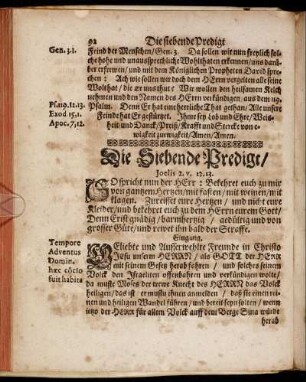 92
Die siebende Predigt
Gen. 3.1.
Feind der Menschen/ Gen. 3. Da sollen wir nun freylich solche
hohe und unaussprechliche Wohlthaten erkennen/ uns darüber
erfrewen/ und mit dem Königlichen Propheten David sprechen
: Ach wie sollen wir doch dem HErrn vergelten alle seine
Wolthat/ die er uns thut? Wir wollen den heilsamen Kelch
nehmen und den Namen des HErrn verkündigen/ aus dem 116.
Ps. 116.12.13.
Psalm. Denn Er hat ein herrliche That gethan/ Alle unsere
Exod 15.1.
Feinde hat Er gestürtzet. Ihme sey Lob und Ehre/ Weisheit
Apoc. 7,12.
und Danck/ Preiß/ Krafft und Stärcke von ewigkeit
zu ewigkeit/ Amen/ Amen.
Die Siebende Predigt/
Joelis 2. v. 12. 13.
SO spricht nun der HErr: Bekehret euch zu mir
von gantzem Hertzen/ mit fasten/ mit weinen/ mit
klagen. Zureisset ewre Hertzen/ und nicht ewre
Kleider/ und bekehret euch zu dem HErrn ewrem Gott/
Denn Er ist gnädig/ barmhertzig/ gedültig und von
grosser Güte/ und rewet ihn bald der Straffe.
Eingang.
Tempore
Adventus
Domin.
hæc cōcio
fuit habita
GEliebte und Außerwehlte Freunde in Christo
JEsu unserm HERRN/ als GOTT der HErr
mit seinem Gesetz herab fuhren/ und solches seinem
Volck den Israeliten offenbahren und verkündigen wolte/
da muste Moses der trewe Knecht des HERRN das Volck
heiligen/ das ist er muste ihnen anmelden/ daß sie einen reinen
und heiligen Wandel führen/ und bereit seyn solten/ wenn
jetzo der HErr für allem Volck auff dem Berge Sina würde
herab